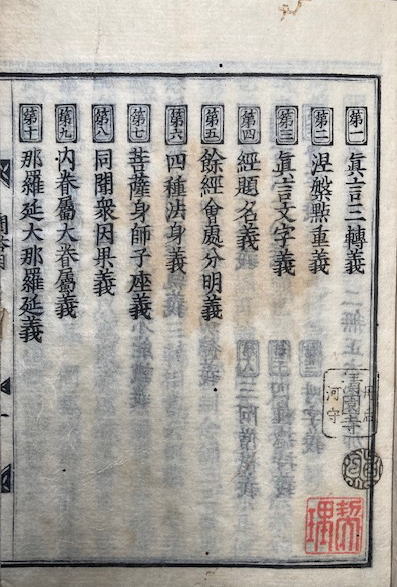 第一 眞言三轉義
第二 涅槃點重義
第三 眞言文字義
第四 經題名義
第五 餘經會處分明義
第六 四種法身義
第七 菩薩身師子座義
第八 同聞衆因果義
第九 内眷屬大眷屬義
第十 那羅延大那羅延義
河守